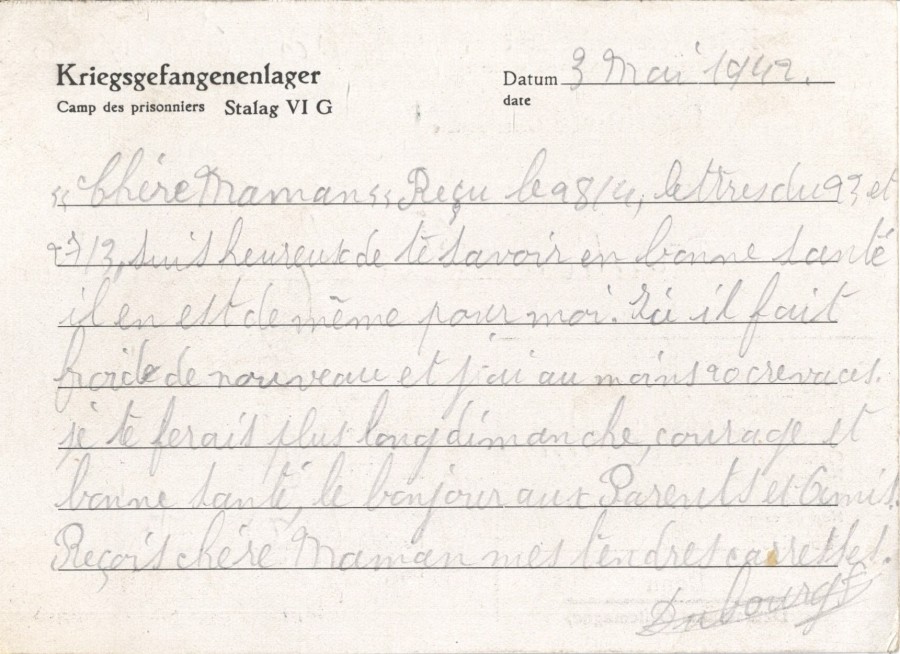 Kriegsgefangenenlager
Camp des prisonniers Stalag VI G
Datum 3 Mai 1942.
date
"Chère Maman" Reçu le 28/4, lettres du 23 et
27/3, suis heureux de te savoir en bonne santé
il en est de même pour moi. Ici il fait
froid de nouveau et j'ai au moins 20 crevaces.
je te ferais plus long dimanche, courage et
bonne santé, le bonjour aux Parents et Amis.
Reçois chère Maman mes tendres carresses.
Dubourg